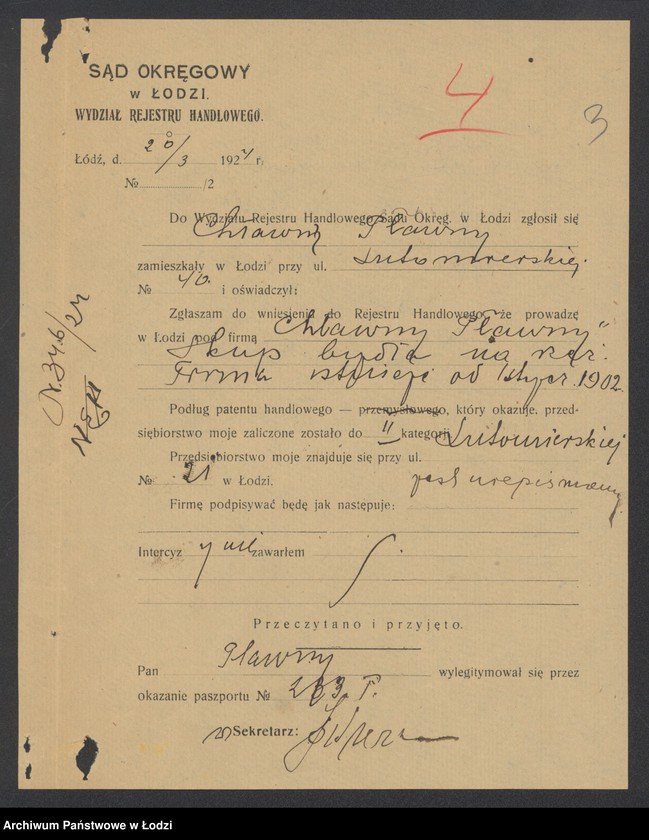 4
3
SĄD OKRĘGOWY
w ŁODZI.
WYDZIAŁ REJESTRU HANDLOWEGO.
Łódź, d. 20/3 1924 r.
№ /2
Do Wydziału Rejestru Handlowego Sądu Okręg. w Łodzi zgłosił się
Chławny Pławny
zamieszkały w Łodzi przy ul. Lutomierskiej
№ 40. i oświadczył:
Zgłaszam do wniesienia do Rejestru Handlowego, że prowadzę
w Łodzi pod firmą "Chławny Pławny"
Skup bydła na rzeź.
Firma istnieje od 1 stycz. 1902.
Podług patentu handlowego — przemysłowego, który okazuję, przed-
siębiorstwo moje zaliczone zostało do II kategorji
Przedsiębiorstwo moje znajduje się przy ul. Lutomierskiej
№ 21 w Łodzi.
Firmę podpisywać będę jak następuje: jest niepiśmienny
Intercyzy nie zawarłem
Przeczytano i przyjęto.
Pan Pławny wylegitymował się przez
okazanie paszportu №
Sekretarz:
Archiwum Państwowe w Łodzi